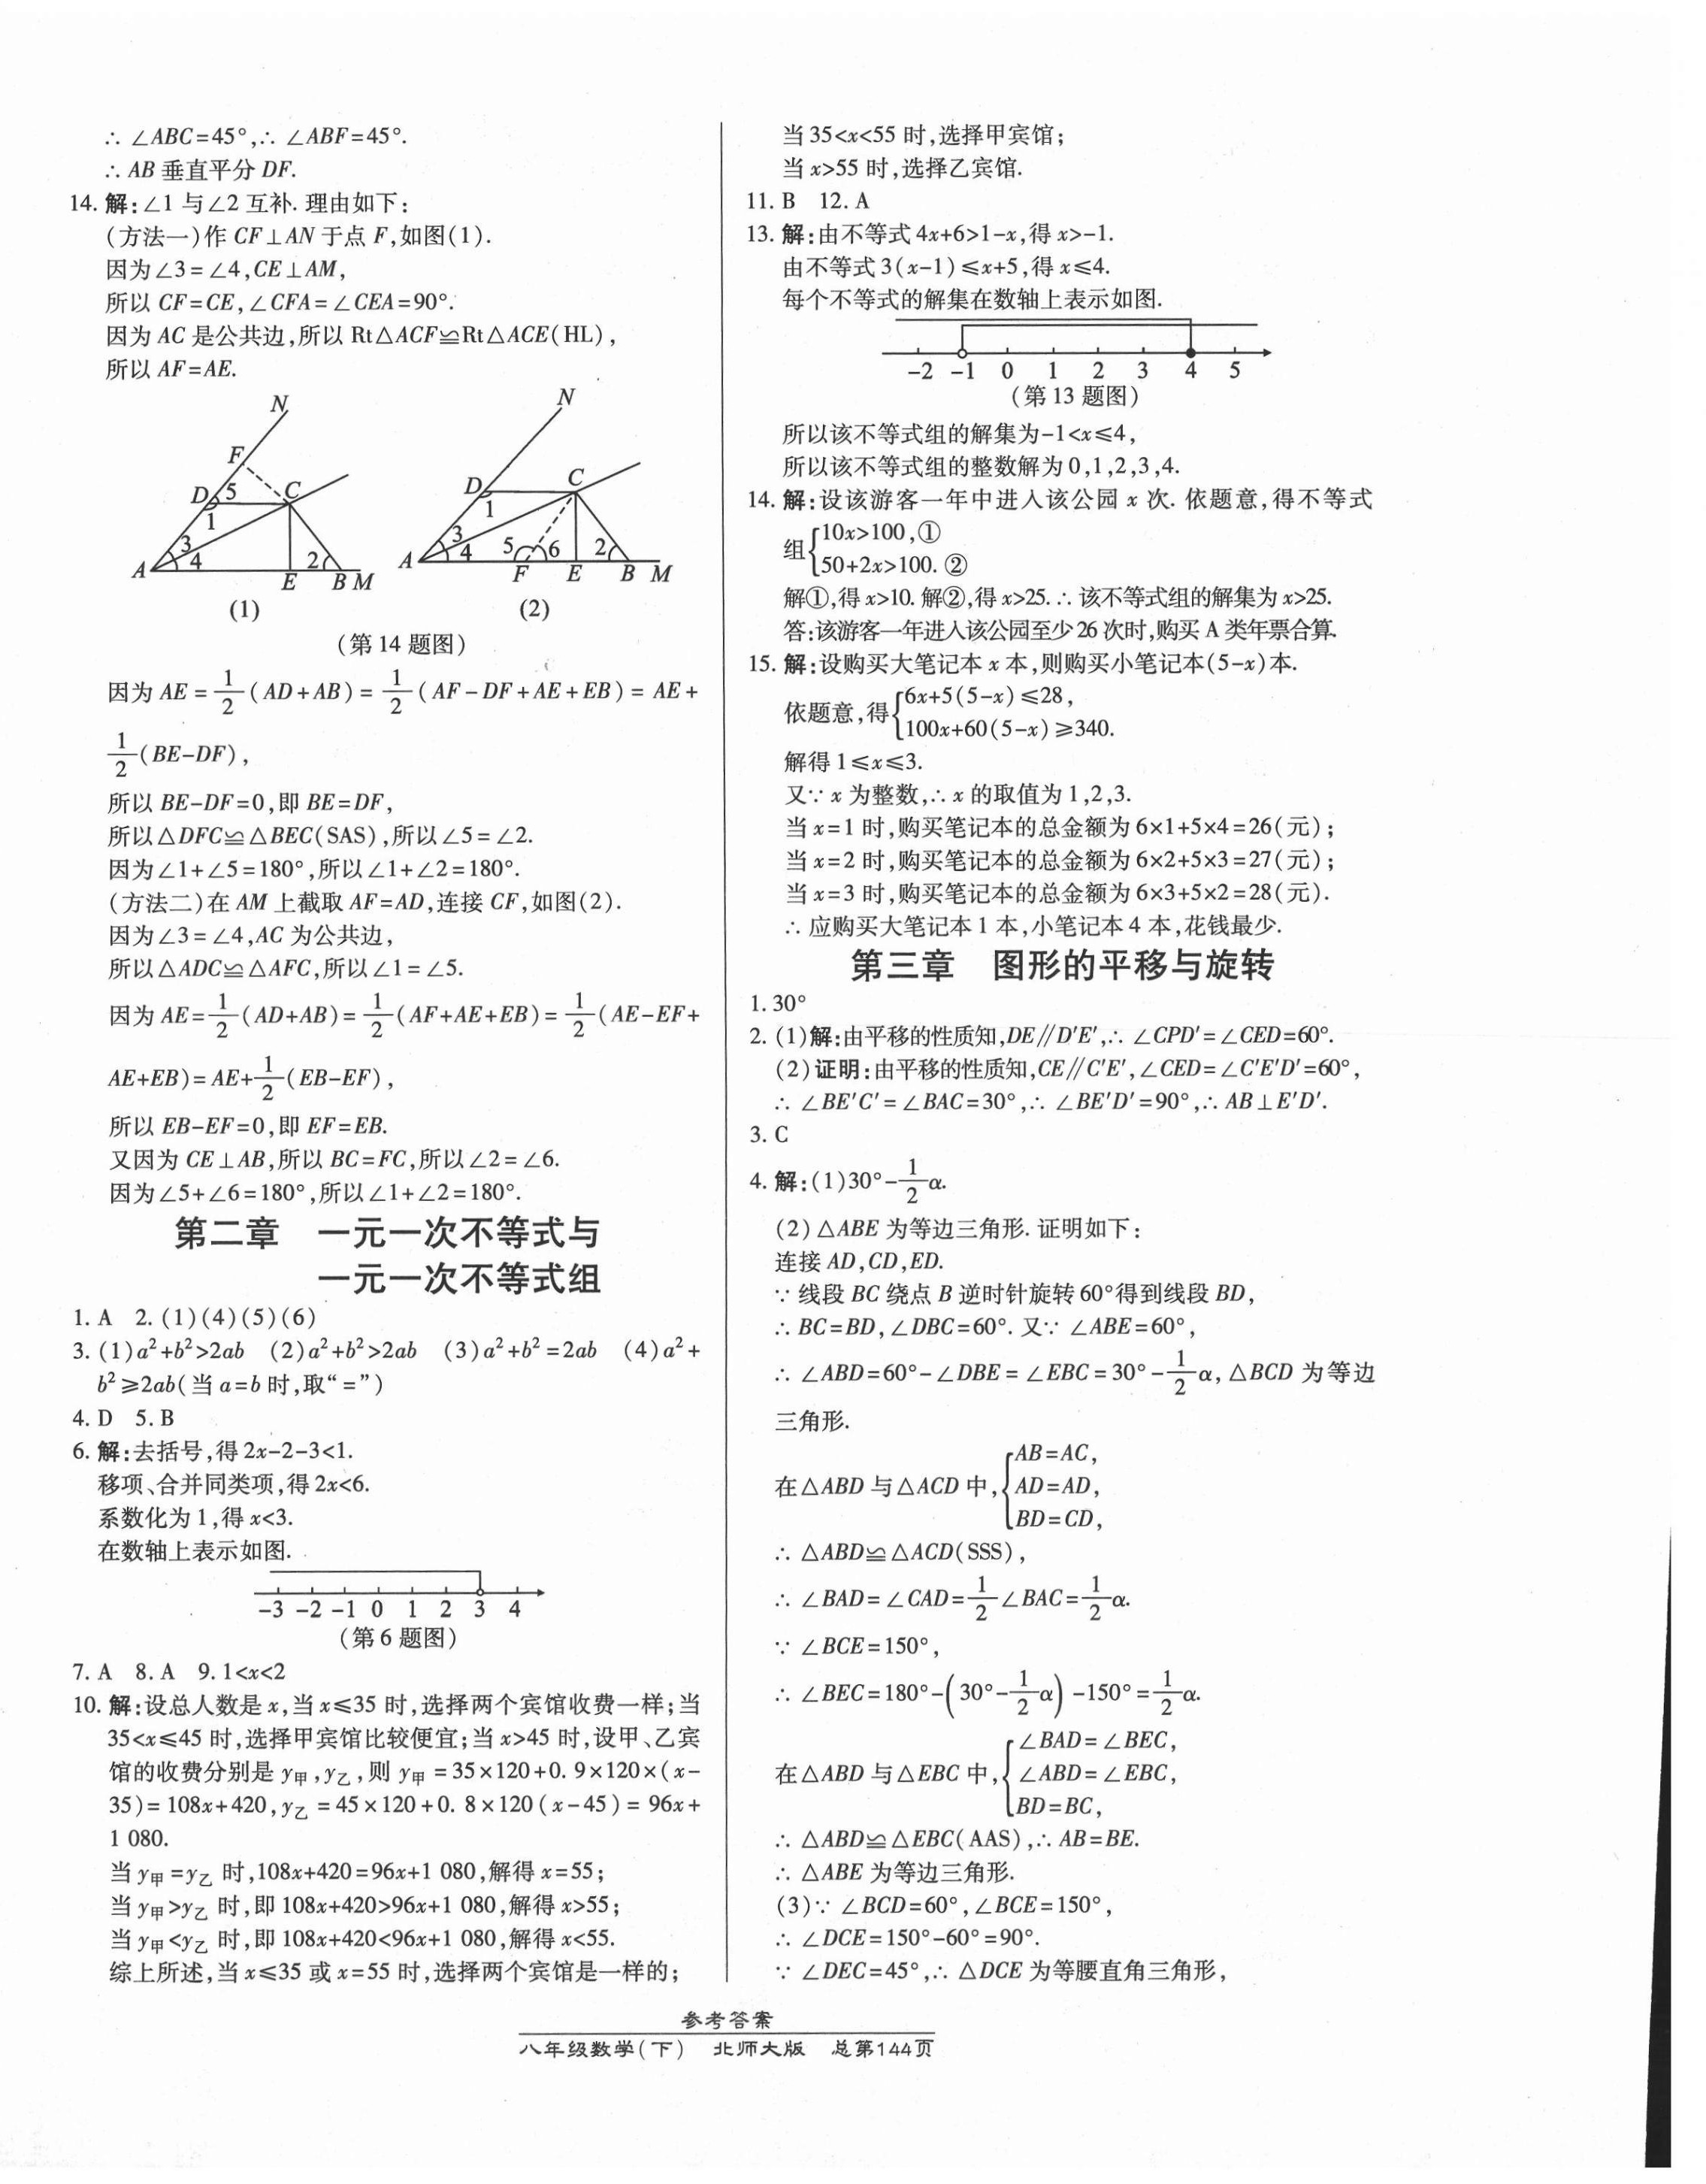 ∴ ∠ABC=45°,∴ ∠ABF=45°.
∴ AB 垂直平分 DF.
14. 解:∠1 与∠2 互补. 理由如下:
(方法一)作 CF⊥AN 于点 F,如图(1).
因为∠3=∠4,CE⊥AM,
所以 CF=CE,∠CFA=∠CEA=90°.
因为 AC 是公共边,所以 Rt△ACF≌Rt△ACE(HL),
所以 AF=AE.
N
F
D 5 C
1
3
4 2
A E B M
(1)
N
D C
1
3
4 5 6 2
A F E B M
(2)
(第 14 题图)
因为 AE=1/2(AD+AB)=1/2(AF-DF+AE+EB)=AE+
1/2(BE-DF),
所以 BE-DF=0,即 BE=DF,
所以△DFC≌△BEC(SAS),所以∠5=∠2.
因为∠1+∠5=180°,所以∠1+∠2=180°.
(方法二)在 AM 上截取 AF=AD,连接 CF,如图(2).
因为∠3=∠4,AC 为公共边,
所以△ADC≌△AFC,所以∠1=∠5.
因为 AE=1/2(AD+AB)=1/2(AF+AE+EB)=1/2(AE-EF+
AE+EB)=AE+1/2(EB-EF),
所以 EB-EF=0,即 EF=EB.
又因为 CE⊥AB,所以 BC=FC,所以∠2=∠6.
因为∠5+∠6=180°,所以∠1+∠2=180°.
第二章 一元一次不等式与
一元一次不等式组
1. A 2. (1)(4)(5)(6)
3. (1)a²+b²>2ab (2)a²+b²>2ab (3)a²+b²=2ab (4)a²+
b²⩾2ab(当 a=b 时,取“=”)
4. D 5. B
6. 解:去括号,得 2x-2-3<1.
移项、合并同类项,得 2x<6.
系数化为 1,得 x<3.
在数轴上表示如图.
-3 -2 -1 0 1 2 3 4
(第 6 题图)
7. A 8. A 9. 1<x<2
10. 解:设总人数是 x,当 x⩽35 时,选择两个宾馆收费一样;当
35<x⩽45 时,选择甲宾馆比较便宜;当 x>45 时,设甲、乙宾
馆的收费分别是 y甲,y乙,则 y甲=35×120+0. 9×120×(x-
35)=108x+420,y乙=45×120+0. 8×120(x-45)=96x+
1 080.
当 y甲=y乙 时,108x+420=96x+1 080,解得 x=55;
当 y甲>y乙 时,即 108x+420>96x+1 080,解得 x>55;
当 y甲<y乙 时,即 108x+420<96x+1 080,解得 x<55.
综上所述,当 x⩽35 或 x=55 时,选择两个宾馆是一样的;
当 35<x<55 时,选择甲宾馆;
当 x>55 时,选择乙宾馆.
11. B 12. A
13. 解:由不等式 4x+6>1-x,得 x>-1.
由不等式 3(x-1)⩽x+5,得 x⩽4.
每个不等式的解集在数轴上表示如图.
-2 -1 0 1 2 3 4 5
(第 13 题图)
所以该不等式组的解集为-1<x⩽4,
所以该不等式组的整数解为 0,1,2,3,4.
14. 解:设该游客一年中进入该公园 x 次. 依题意,得不等式
组{10x>100,①
50+2x>100. ②
解①,得 x>10. 解②,得 x>25. ∴ 该不等式组的解集为 x>25.
答:该游客一年进入该公园至少 26 次时,购买 A 类年票合算.
15. 解:设购买大笔记本 x 本,则购买小笔记本(5-x)本.
依题意,得{6x+5(5-x)⩽28,
100x+60(5-x)⩾340.
解得 1⩽x⩽3.
又∵ x 为整数,∴ x 的取值为 1,2,3.
当 x=1 时,购买笔记本的总金额为 6×1+5×4=26(元);
当 x=2 时,购买笔记本的总金额为 6×2+5×3=27(元);
当 x=3 时,购买笔记本的总金额为 6×3+5×2=28(元).
∴ 应购买大笔记本 1 本,小笔记本 4 本,花钱最少.
第三章 图形的平移与旋转
1. 30°
2. (1)解:由平移的性质知,DE∥D′E′,∴ ∠CPD′=∠CED=60°.
(2)证明:由平移的性质知,CE∥C′E′,∠CED=∠C′E′D′=60°,
∴ ∠BE′C′=∠BAC=30°,∴ ∠BE′D′=90°,∴ AB⊥E′D′.
3. C
4. 解:(1)30°-1/2α.
(2)△ABE 为等边三角形. 证明如下:
连接 AD,CD,ED.
∵ 线段 BC 绕点 B 逆时针旋转 60°得到线段 BD,
∴ BC=BD,∠DBC=60°. 又∵ ∠ABE=60°,
∴ ∠ABD=60°-∠DBE=∠EBC=30°-1/2α,△BCD 为等边
三角形.
在△ABD 与△ACD 中,{AB=AC,
AD=AD,
BD=CD,
∴ △ABD≌△ACD(SSS),
∴ ∠BAD=∠CAD=1/2∠BAC=1/2α.
∵ ∠BCE=150°,
∴ ∠BEC=180°-(30°-1/2α)-150°=1/2α.
在△ABD 与△EBC 中,{∠BAD=∠BEC,
∠ABD=∠EBC,
BD=BC,
∴ △ABD≌△EBC(AAS),∴ AB=BE.
∴ △ABE 为等边三角形.
(3)∵ ∠BCD=60°,∠BCE=150°,
∴ ∠DCE=150°-60°=90°.
∵ ∠DEC=45°,∴ △DCE 为等腰直角三角形,
参考答案
八年级数学(下) 北师大版 总第144页